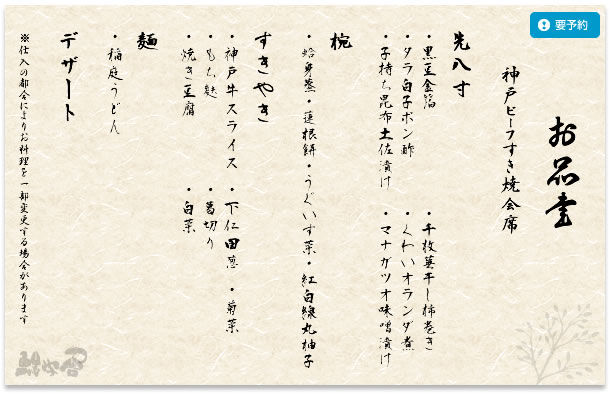 要予約
お品書
神戸ビーフすき焼会席
先八寸
・黒豆金箔 ・千枚蕪干し柿巻き
・タラ白子ポン酢 ・くわいオランダ煮
・子持ち昆布土佐漬け ・マナガツオ味噌漬け
椀
・蛤身蒸・蓮根餅・うぐいす菜・紅白線丸柚子
すきやき
・神戸牛スライス ・下仁田葱 ・菊菜
・もち麩 ・葛切り
・焼き豆腐 ・白菜
麺
・稲庭うどん
デザート
※仕入の都合によりお料理を一部変更する場合があります